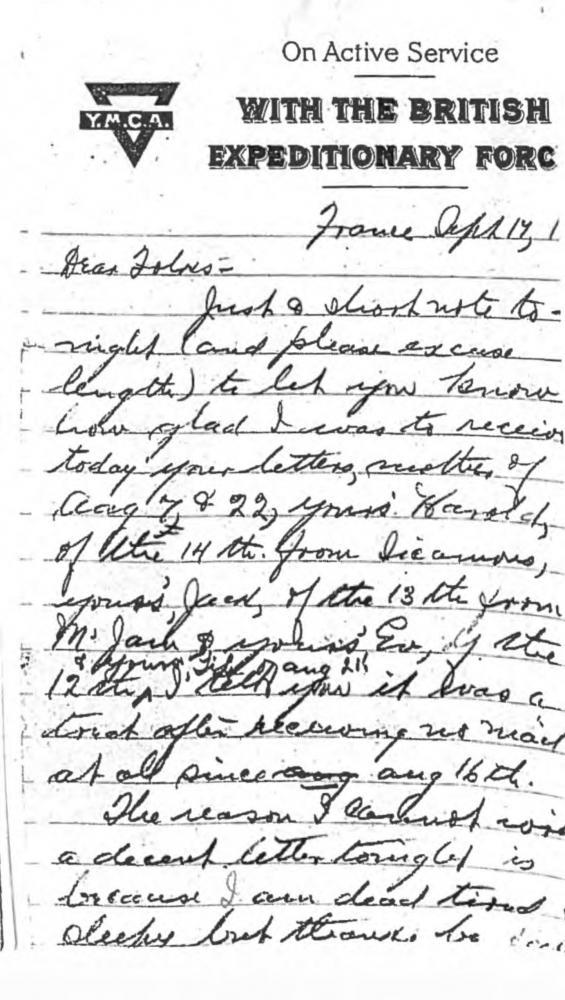 On Active Service
WITH THE BRITISH
Y.M.C.A.
EXPEDITIONARY FORC
France Sept 17, 1
Dear Folks:-
Just a short note to-
night (and please excuse
length) to let you know
how glad I was to receive
today your letters, mother, of
Aug 7 & 22, yours, Harold,
of the 14 th. from Sicamous,
yours, Jack, of the 13 th from
& yours, Ev, of the
& yours, of aug 21
12 th, I tell you it was a
treat after receiving no mail
at all since aug 16 th.
The reason I cannot
a decent letter tonight is
because I am dead tired
sleepy but thanks be